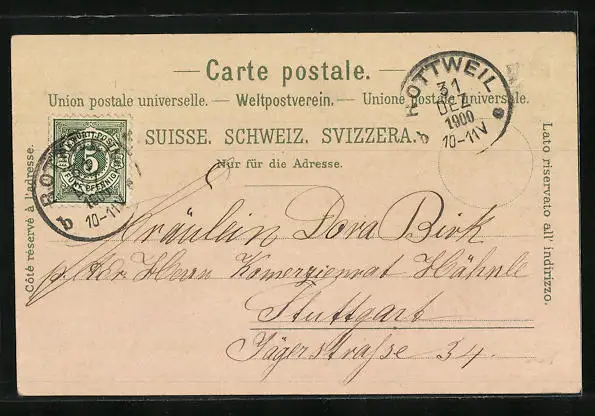 — Carte postale. —
Union postale universelle. — Weltpostverein. — Unione postale universale.
SUISSE. SCHWEIZ. SVIZZERA.
Nur für die Adresse.
Côté réservé à l'adresse.
Lato riservato all' indirizzo.
5
FÜNF PFENNIG
ROTTWEIL
31
DEZ
1900
10-11V
b
10-11V
b
Fräulein Dora Birk
Herrn Komerzienrat Hähnle
Stuttgart
Jägerstraße 34.